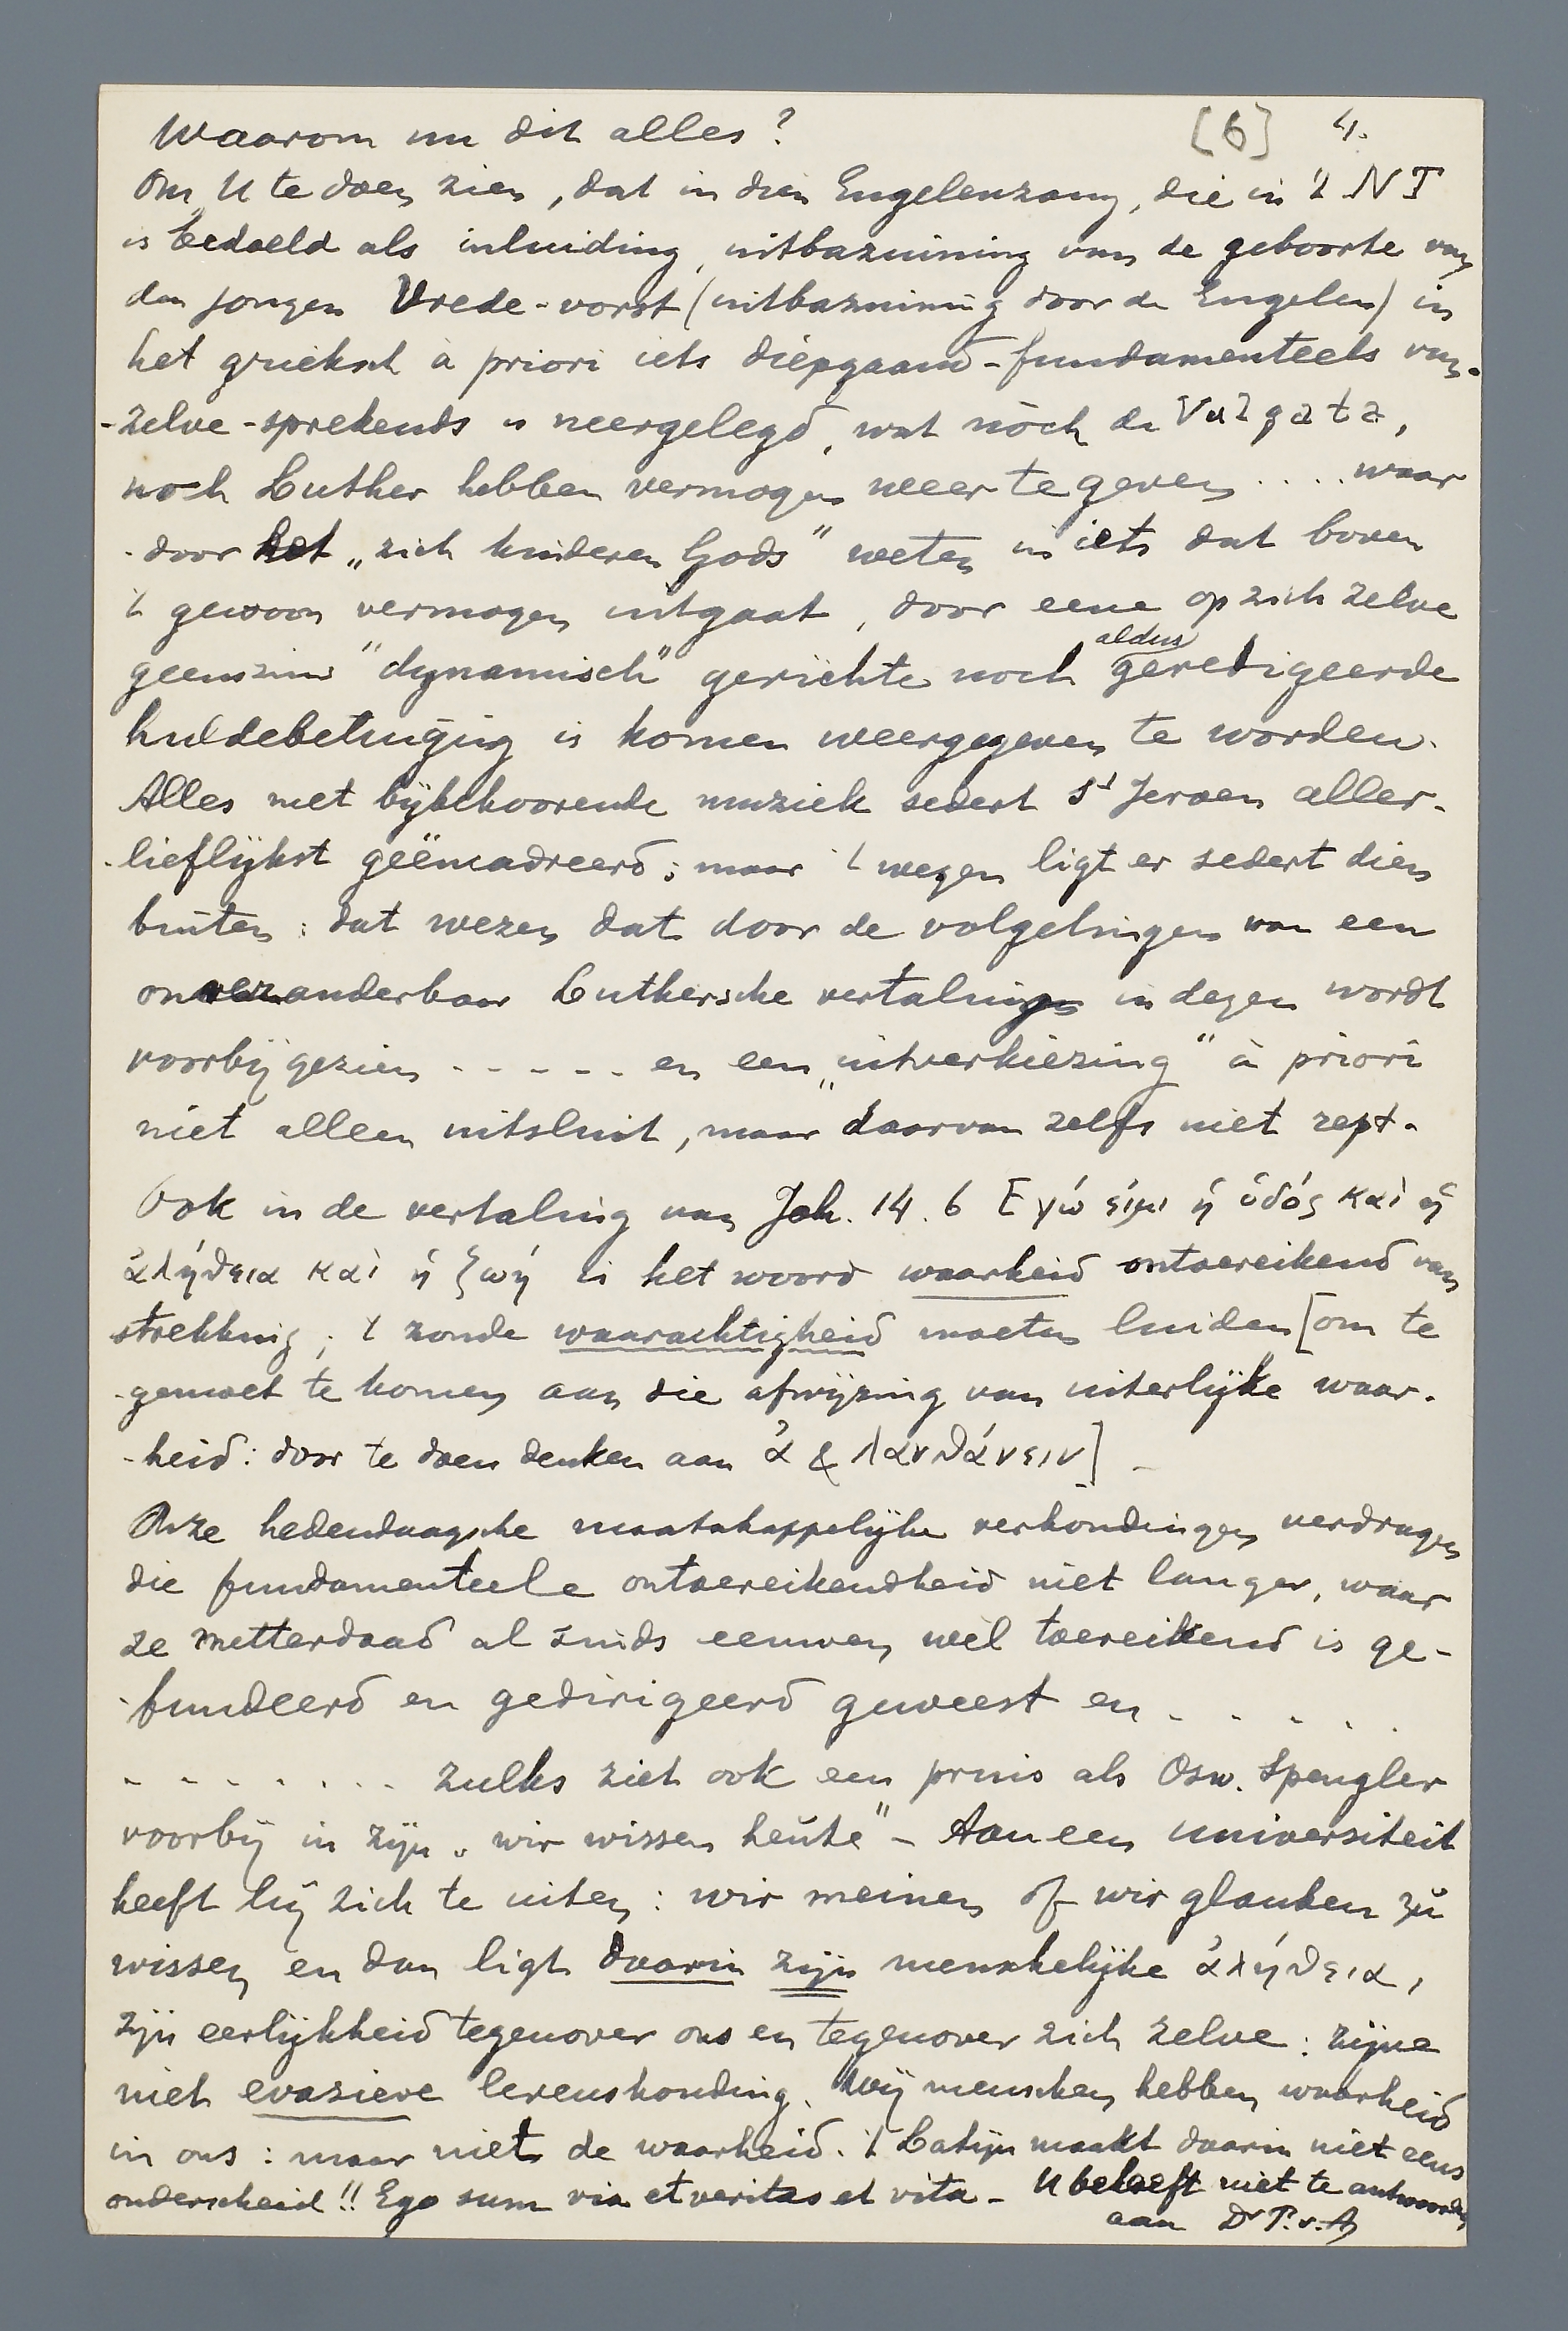 Waarom nu dit alles? [6] 4.
Om U te doen zien, dat in dien Engelenzang, die in 't NT
is bedoeld als inluiding, uitbazuining van de geboorte van
den jongen Vrede-vorst (uitbazuining door de Engelen) in
het grieksch à priori iets diepgaand-fundamenteels van-
-zelve-sprekends is neergelegd, wat nòch de Vulgata,
noch Luther hebben vermogen weer te geven .... waar
-door het „zich kinderen Gods" weten in iets dat boven
't gewoon vermogen uitgaat, door eene op zich zelve
geenszins "dynamisch" gerichte noch aldus geredigeerde
huldebetuiging is komen weergegeven te worden.
Alles met bijbehoorende muziek sedert St Jeroen aller-
-lieflijkst geëncadreerd; maar 't wezen ligt er sedert dien
buiten: dat wezen dat door de volgelingen van een
onveranderbaar Luthersche vertaling in dezen wordt
voorbij gezien ..... en een „uitverkiezing" à priori
niet alleen uitsluit, maar daarvan zelfs niet rept.
Ook in de vertaling van Joh. 14. 6 Εγώ εἰμι ἡ ὁδός καὶ ἡ
ἀλήθεια καὶ ἡ ζωή is het woord waarheid ontoereikend van
strekking; 't zoude waarachtigheid moeten luiden [om te
-gemoet te komen aan die afwijzing van uiterlijke waar-
-heid: door te doen denken aan ἀ & λανθάνειν] -
Onze hedendaagsche maatschappelijke verhoudingen verdragen
die fundamenteele ontoereikendheid niet langer, waar
ze metterdaad al sinds eeuwen wèl toereikend is ge-
-fundeerd en gedirigeerd geweest en .....
........ zulks ziet ook een pruis als Osw. Spengler
voorbij in zijn „wir wissen heute" - Aan een universiteit
heeft hij zich te uiten: wir meinen of wir glauben zu
wissen en dan ligt daarin zijn menschelijke ἀλήθεια,
zijn eerlijkheid tegenover ons en tegenover zich zelve: zijne
niet evasieve levenshouding. Wij menschen hebben waarheid
in ons: maar niet de waarheid. 't Latijn maakt daarin niet eens
onderscheid!! Ego sum via et veritas et vita - U behoeft niet te antwoorden
aan Dr P. v. A